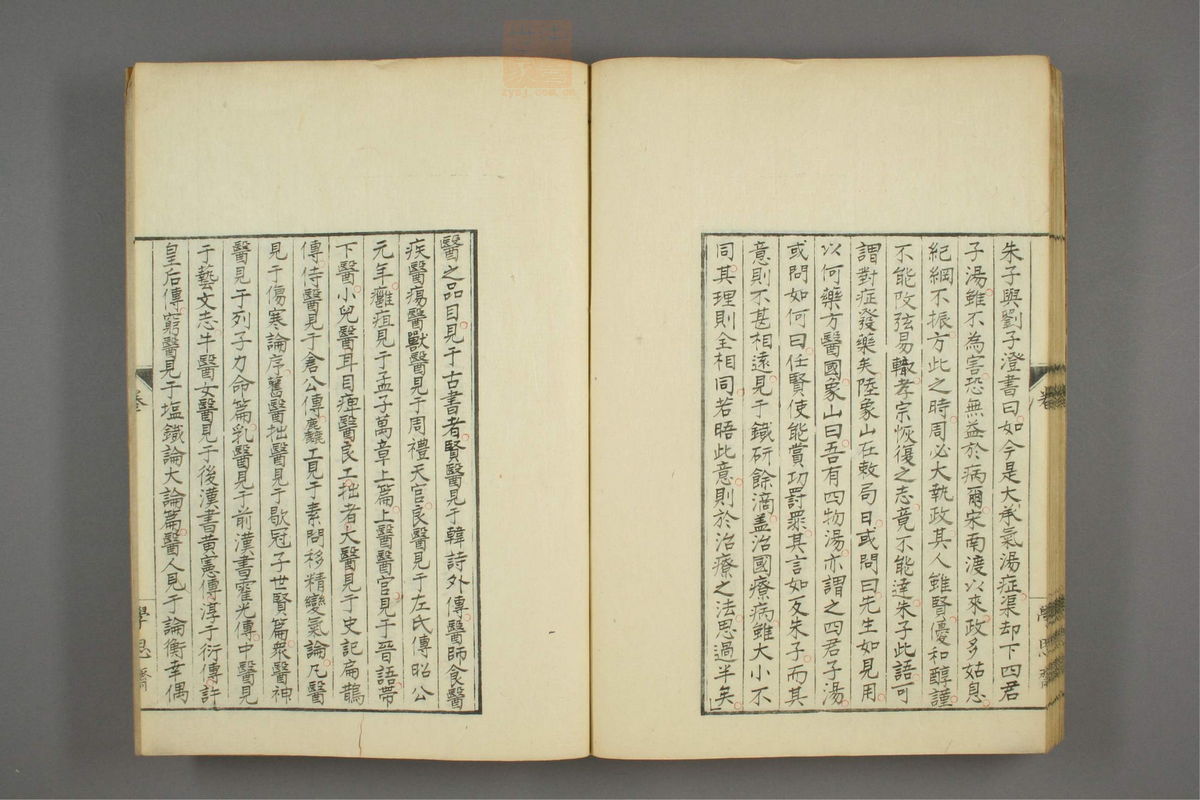 朱子與劉子澄書曰如今是大承氣湯症渠却下四君
子湯雖不為害恐無益於病爾宋南渡以來政多姑息
紀綱不振方此之時周必大執政其人雖賢優和醇謹
不能改弦易轍孝宗恢復之志竟不能達朱子此語可
謂對症發藥矣陸象山在敕局日或問曰先生如見用
以何藥方醫國象山曰吾有四物湯亦謂之四君子湯
或問如何曰任賢使能賞功罸罪其言如反朱子而其
意則不甚相遠見于鐵研餘滴盖治國療病雖大小不
同其理則全相同若晤此意則於治療之法思過半矣
醫之品目見于古書者賢醫見于韓詩外傳醫師食醫
疾醫瘍醫獸醫見于周禮天官良醫見于左氏傳昭公
元年癰疽見于孟子萬章上篇上醫醫官見于晉語帶
下醫小兒醫耳目痺醫良工拙者大醫見于史記扁鵲
傳侍醫見于倉公傳麤工見于素問移精變氣論凡醫
見于傷寒論序舊醫拙醫見于歇冠子世賢篇衆醫神
醫見于列子力命篇乳醫見于前漢書霍光傳中醫見
于藝文志牛醫女醫見于後漢書黃憲傳淳于衍傳許
皇后傳窮醫見于塩鐵論大論篇醫人見于論衡幸偶
學思齋
zysj.com.cn